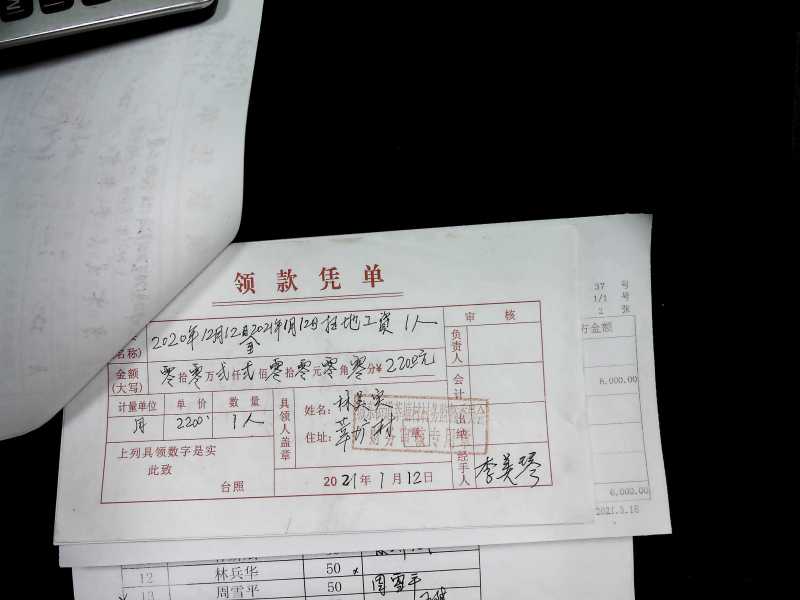 领款凭单
2020年12月12日至2021年1月12日扫地工资 1人
名称)
审核
负责人
金额(大写) 零拾零万弍仟弍佰零拾零元零角零分¥2200元
会计
计量单位 单价 数量
月 2200 1人
具领人盖章
姓名:
住址:
村
出纳
上列具领数字是实
此致
台照
2021年1月12日
经手人 李美琴
37 号
1/1 号
2 张
行金额
6,000.00
6,000.00
2021.3.18
12 林兵华 50
13 周雪平 50 周雪平